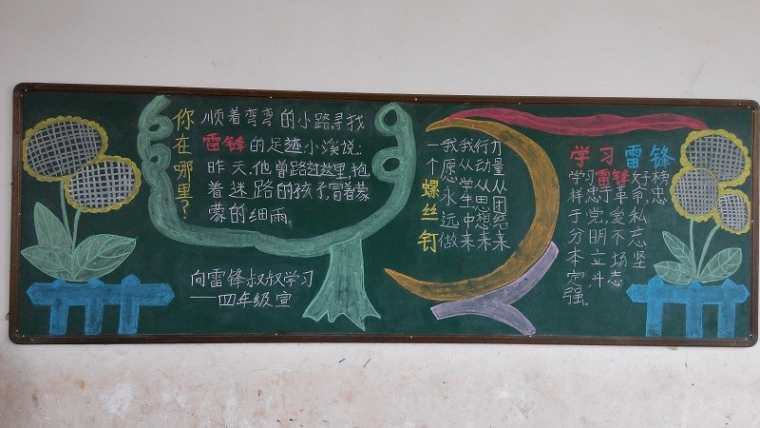 你在哪里？
顺着弯弯的小路,寻找
雷锋的足迹,小溪说:
昨天,他曾路过这里,抱
着迷路的孩子,冒着蒙
蒙的细雨。
向雷锋叔叔学习
——四年级宣
力量从团结来
行动从思想来
我从学生中来
我愿永远做
一个螺丝钉
学习雷锋
学习雷锋好榜
样忠于革命,忠
于党,爱私
分明不忘
本立场坚
定斗志
强。